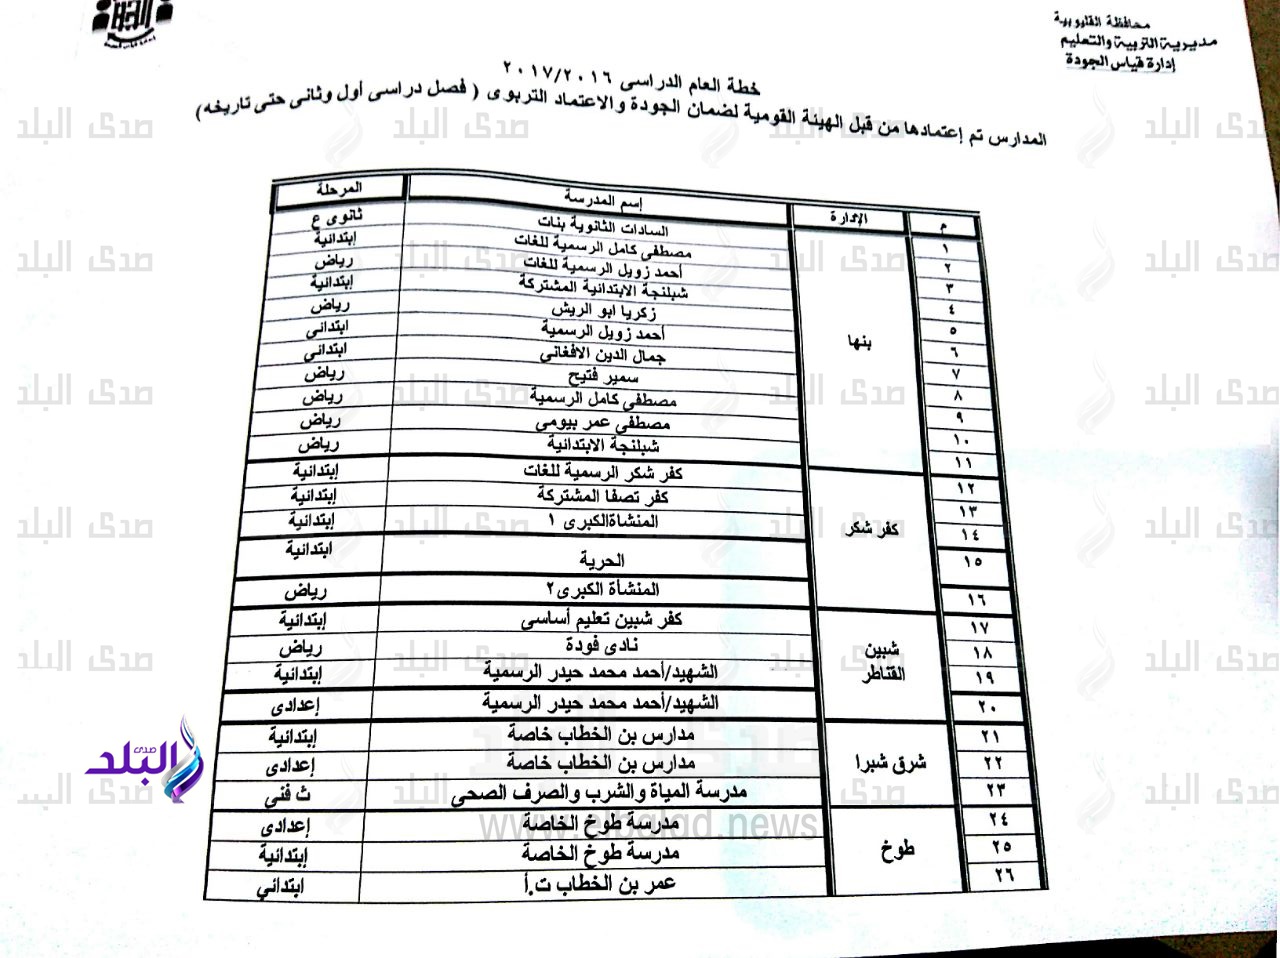 محافظة القليوبية
مديرية التربية والتعليم
إدارة قياس الجودة
خطة العام الدراسى ٢٠١٧/٢٠١٦
المدارس تم إعتمادها من قبل الهيئة القومية لضمان الجودة والاعتماد التربوى ( فصل دراسى أول وثانى حتى تاريخه)
م الإدارة إسم المدرسة المرحلة
١ بنها السادات الثانوية بنات ثانوى ع
٢ مصطفى كامل الرسمية للغات إبتدائية
٣ أحمد زويل الرسمية للغات رياض
٤ شبلنجة الابتدائية المشتركة إبتدائية
٥ زكريا ابو الريش رياض
٦ أحمد زويل الرسمية ابتدائى
٧ جمال الدين الافغانى ابتدائى
٨ سمير فتيح رياض
٩ مصطفى كامل الرسمية رياض
١٠ مصطفى عمر بيومى رياض
١١ شبلنجة الابتدائية رياض
١٢ كفر شكر كفر شكر الرسمية للغات إبتدائية
١٣ كفر تصفا المشتركة إبتدائية
١٤ المنشاةالكبرى ١ إبتدائية
١٥ الحرية ابتدائية
١٦ المنشأة الكبرى٢ رياض
١٧ شبين القناطر كفر شبين تعليم أساسى إبتدائية
١٨ نادى فودة رياض
١٩ الشهيد/أحمد محمد حيدر الرسمية إبتدائية
٢٠ الشهيد/أحمد محمد حيدر الرسمية إعدادى
٢١ شرق شبرا مدارس بن الخطاب خاصة إبتدائية
٢٢ مدارس بن الخطاب خاصة إعدادى
٢٣ مدرسة المياة والشرب والصرف الصحى ث فنى
٢٤ طوخ مدرسة طوخ الخاصة إعدادى
٢٥ مدرسة طوخ الخاصة إبتدائية
٢٦ عمر بن الخطاب ت.أ ابتدائي
صدى البلد
www.elbalad.news